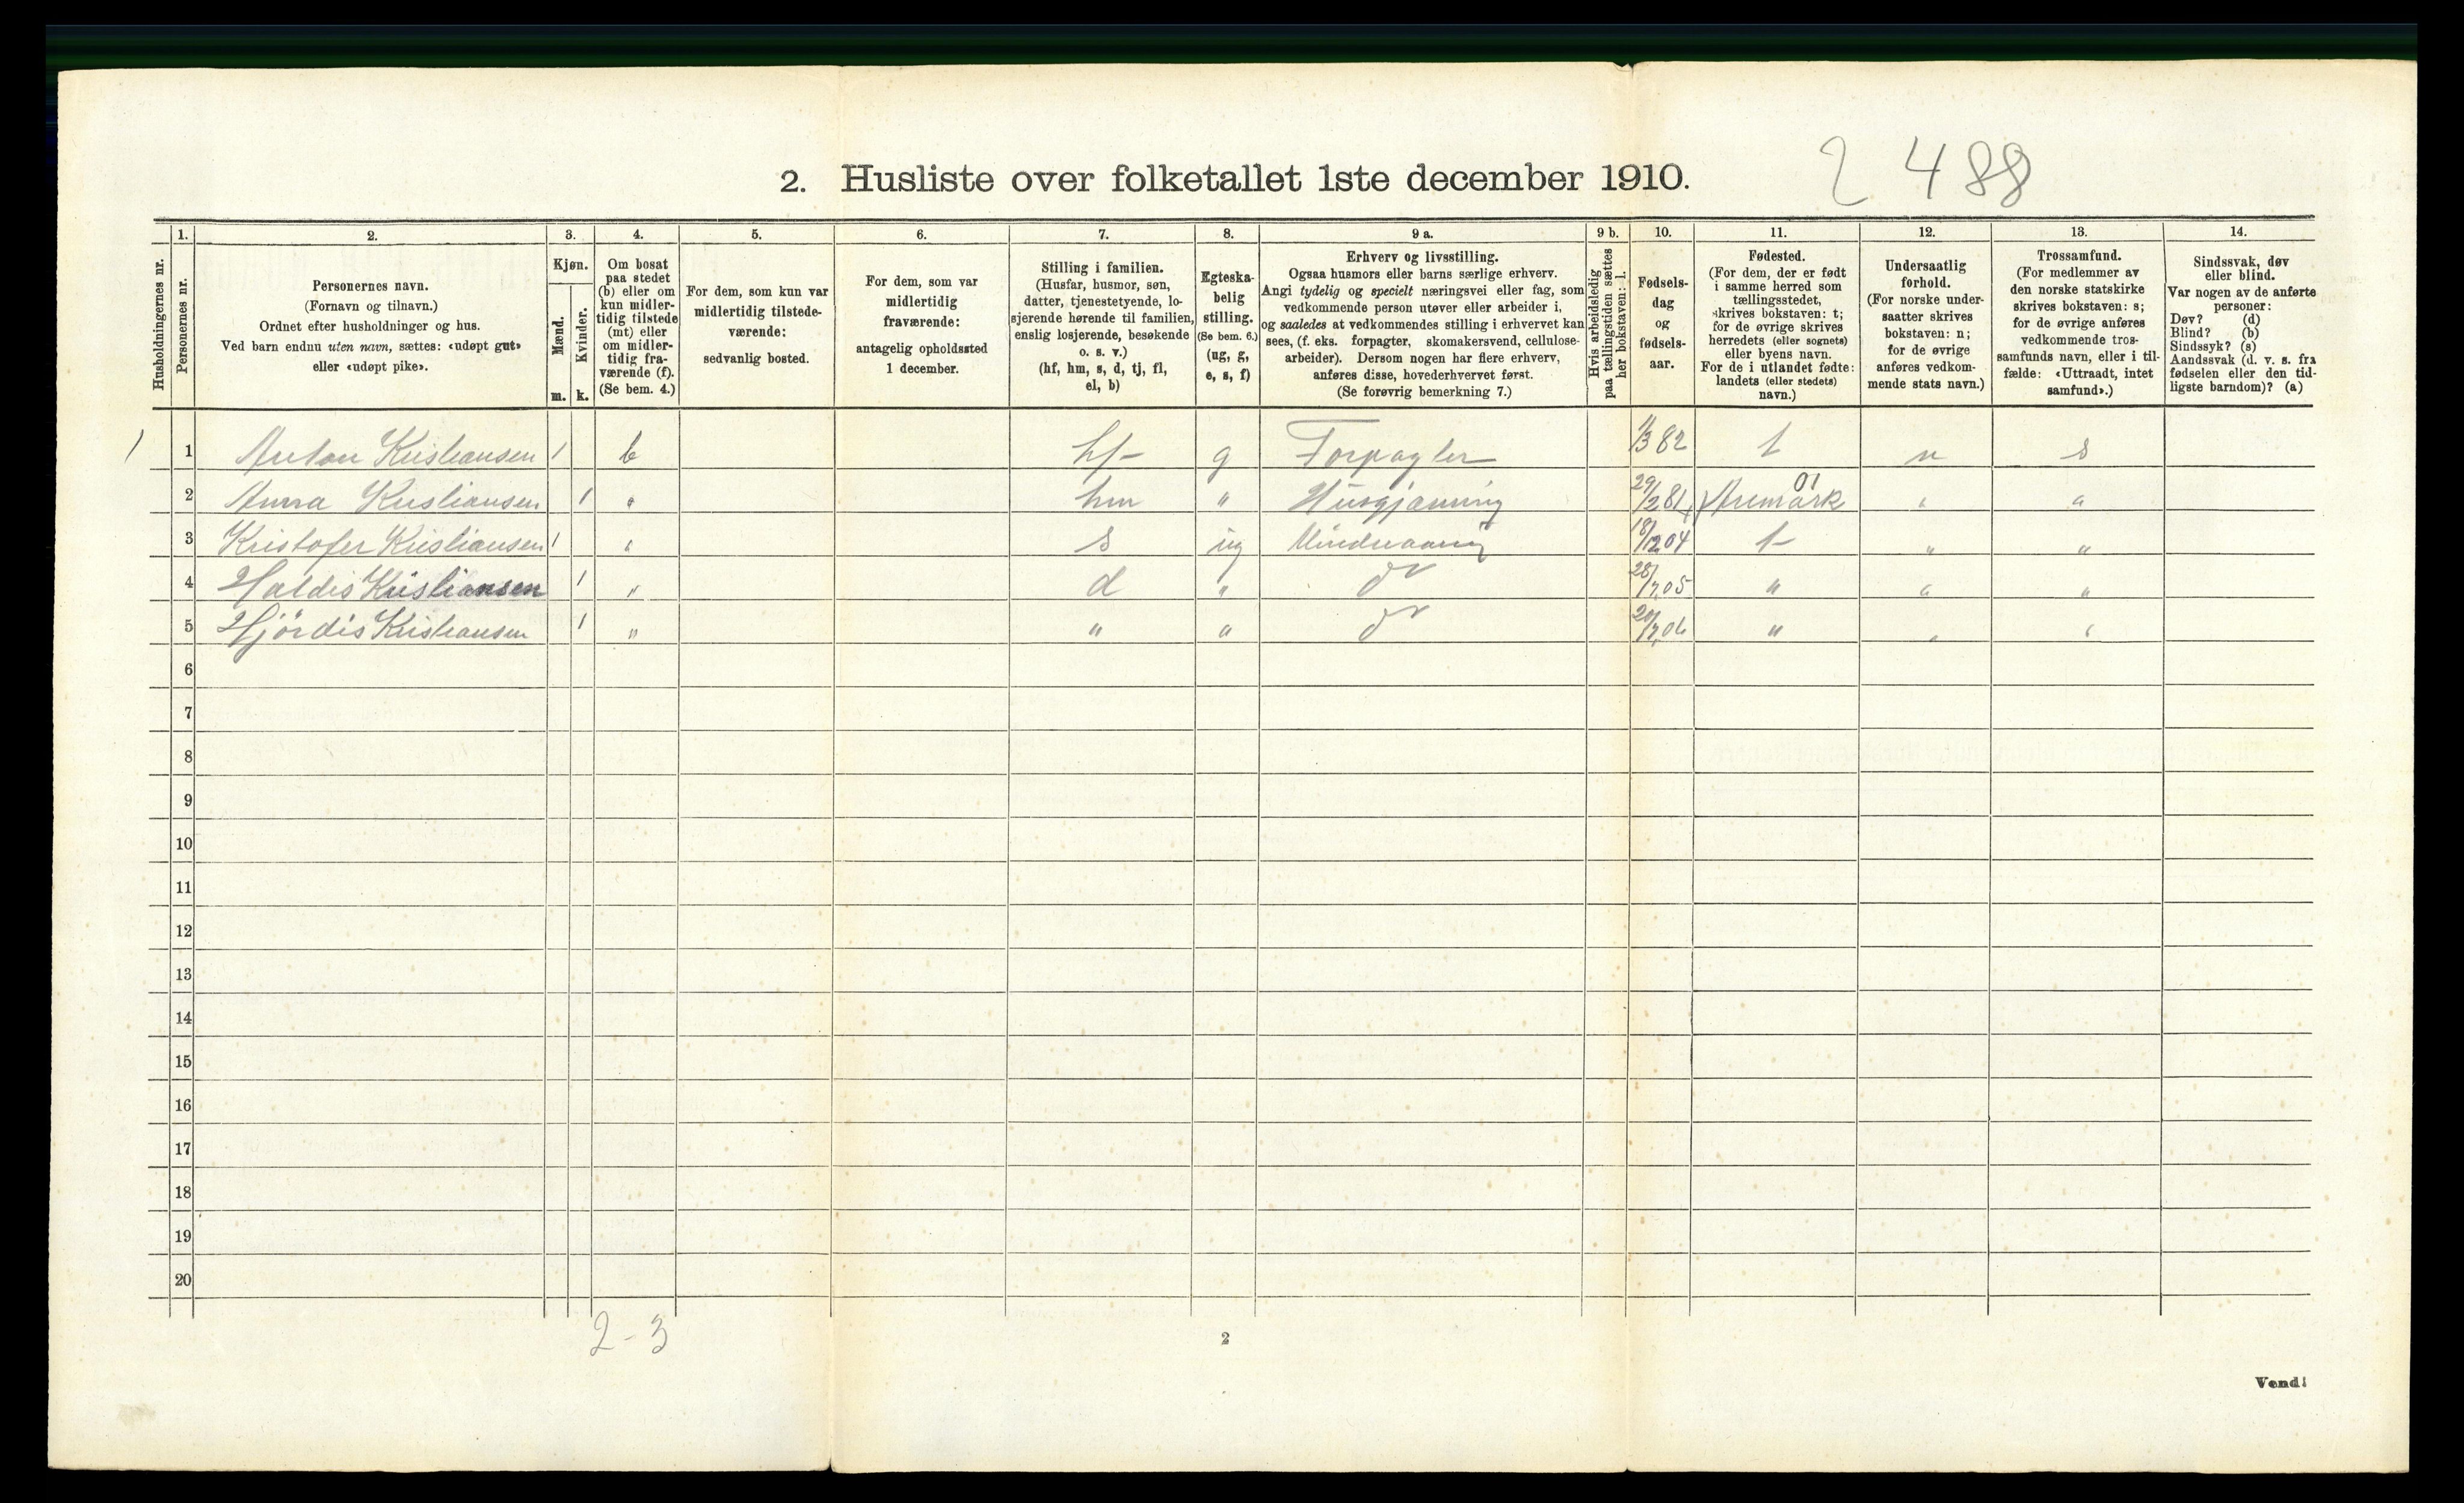 2 4 88
2. Husliste over folketallet 1ste december 1910.
Husholdningernes nr.
1.
Personernes nr.
2.
Personernes navn.
(Fornavn og tilnavn.)
Ordnet efter husholdninger og hus.
Ved barn endnu uten navn, sættes: «udøpt gut»
eller «udøpt pike».
3.
Kjøn.
Mænd.
Kvinder.
m. k.
4.
Om bosat
paa stedet
(b) eller om
kun midler-
tidig tilstede
(mt) eller
om midler-
tidig fra-
værende (f).
(Se bem. 4.)
5.
For dem, som kun var
midlertidig tilstede-
værende:
sedvanlig bosted.
6.
For dem, som var
midlertidig
fraværende:
antagelig opholdssted
1 december.
7.
Stilling i familien.
(Husfar, husmor, søn,
datter, tjenestetyende, lo-
sjerende hørende til familien,
enslig losjerende, besøkende
o. s. v.)
(hf, hm, s, d, tj, fl,
el, b)
8.
Egteska-
belig
stilling.
(Se bem. 6.)
(ug, g,
e, s, f)
9 a.
Erhverv og livsstilling.
Ogsaa husmors eller barns særlige erhverv.
Angi tydelig og specielt næringsvei eller fag, som
vedkommende person utøver eller arbeider i,
og saaledes at vedkommendes stilling i erhvervet kan
sees, (f. eks. forpagter, skomakersvend, cellulose-
arbeider). Dersom nogen har flere erhverv,
anføres disse, hovederhvervet først.
(Se forøvrig bemerkning 7.)
9 b.
Hvis arbeidsledig
paa tællingstiden sættes
her bokstaven: l.
10.
Fødsels-
dag
og
fødsels-
aar.
11.
Fødested.
(For dem, der er født
i samme herred som
tællingsstedet,
skrives bokstaven: t;
for de øvrige skrives
herredets (eller sognets)
eller byens navn.
For de i utlandet fødte:
landets (eller stedets)
navn.)
12.
Undersaatlig
forhold.
(For norske under-
saatter skrives
bokstaven: n;
for de øvrige
anføres vedkom-
mende stats navn.)
13.
Trossamfund.
(For medlemmer av
den norske statskirke
skrives bokstaven: s;
for de øvrige anføres
vedkommende tros-
samfunds navn, eller i til-
fælde: «Uttraadt, intet
samfund».)
14.
Sindssvak, døv
eller blind.
Var nogen av de anførte
personer:
Døv? (d)
Blind? (b)
Sindssyk? (s)
Aandssvak (d. v. s. fra
fødselen eller den tid-
ligste barndom)? (a)
1 1 Anton Kristiansen 1 b hf- g Forpagter 1/3 82 t n s
2 Anna Kristiansen 1 " hm " Husgjærning 29/12 81 Aremark 01 " "
3 Kristofer Kristiansen 1 " s ug 18/12 04 t- " "
4 Haldis Kristiansen 1 " d " do 28/7 05 " " "
5 Hjördis Kristiansen 1 " " " do " " "
6
7
8
9
10
11
12
13
14
15
16
17
18
19
20
2-3
2
Vend!